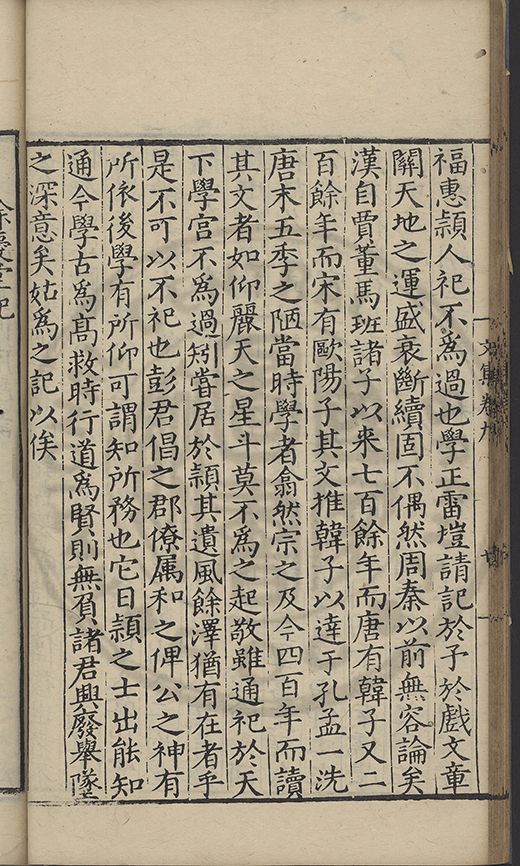 福惠頴人祀不爲過也學正雷塏請記於予於戲文章
關天地之運盛衰斷續固不偶然周秦以前無容論矣
漢自賈董馬班諸子以來七百餘年而唐有韓子又二
百餘年而宋有歐陽子其文推韓子以達于孔孟一洗
唐末五季之陋當時學者翕然宗之及今四百年而讀
其文者如仰麗天之星斗莫不爲之起敬雖通祀於天
下學宫不爲過矧嘗居於頴其遺風餘澤猶有在者乎
是不可以不祀也彭君倡之郡僚属和之俾公之神有
所依後學有所仰可謂知所務也它日頴之士出能知
通今學古爲髙救時行道爲賢則無負諸君興廢舉墜
之深意矣姑爲之記以俟
文集卷九